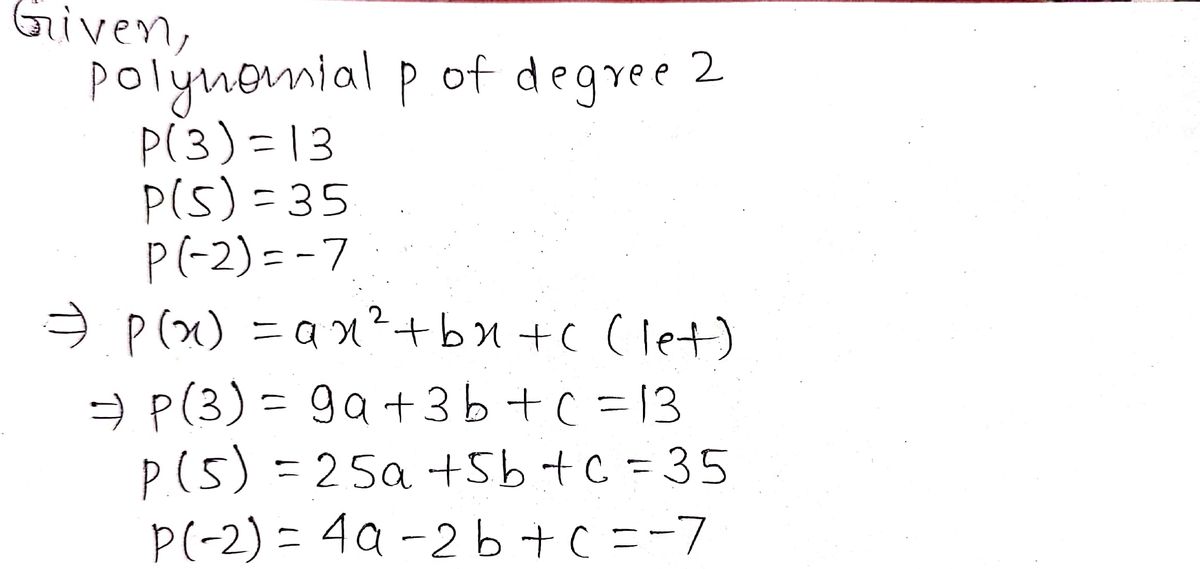 Given,
polynomial p of degree 2
P(3) = 13
P(5) = 35
P(-2) = -7
⇒ P(x) = ax²+bx+c (let)
⇒ P(3) = 9a+3b+c=13
P(5) = 25a+5b+c=35
P(-2) = 4a-2b+c=-7